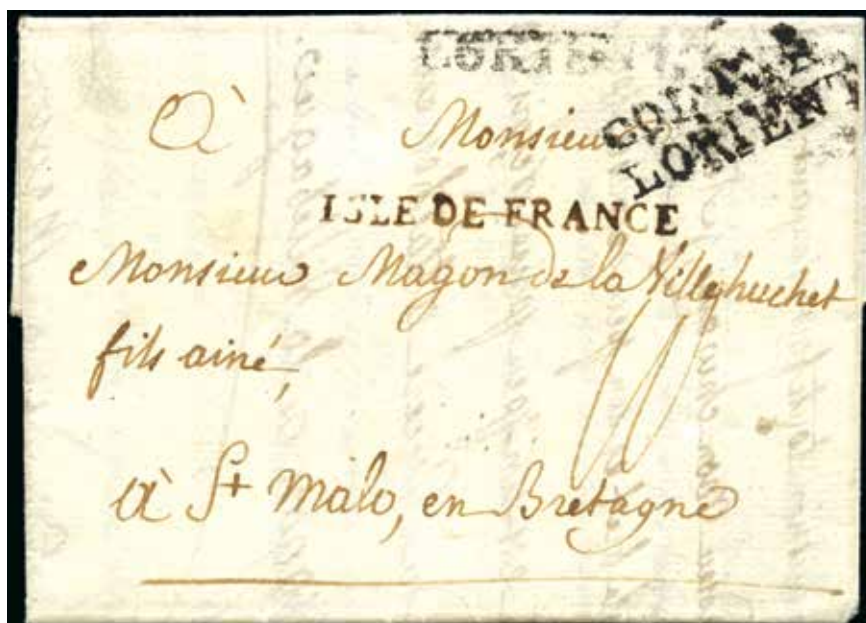 LORIENT
COL. PAR
LORIENT
À Monsieur
ISLE DE FRANCE
Monsieur Magon de la Villehuchet
fils ainé,
à St Malo, en Bretagne